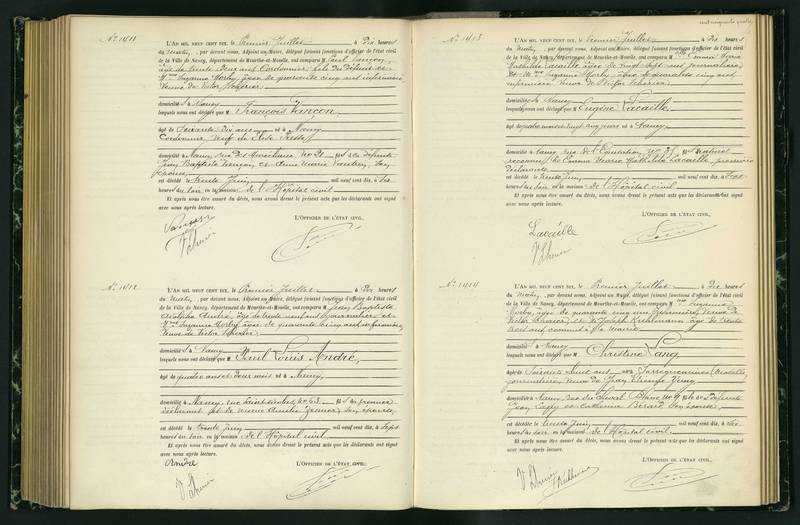 N° 1411
L'AN MIL NEUF CENT DIX, le Premier Juillet à Dix heures
du Matin, par devant nous, Adjoint au Maire, délégué faisant fonctions d'officier de l'état civil
de la Ville de Nancy, département de Meurthe-et-Moselle, ont comparu M Paul
âgé de trente deux ans Cordonnier fils du défunt et
Mme Suzanne Morby âgée de quarante cinq ans infirmière
Veuve de Victor
domiciliés à Nancy
lesquels nous ont déclaré que M François
âgé de Soixante Dix ans né à Nancy
Cordonnier Veuf de
domicilié à Nancy, rue des Maréchaux N° 21 fils de défunts
Jean Baptiste et Anne Marie son
épouse
est décédé le trente Juin mil neuf cent dix, à dix
heures du soir en la maison de l'Hôpital civil
Et après nous être assuré du décès, nous avons dressé le présent acte que les déclarants ont signé
avec nous après lecture.
L'OFFICIER DE L'ÉTAT CIVIL,
N° 1412
L'AN MIL NEUF CENT DIX, le Premier Juillet à Dix heures
du Matin, par devant nous, Adjoint au Maire, délégué faisant fonctions d'officier de l'état civil
de la Ville de Nancy, département de Meurthe-et-Moselle, ont comparu M Jean Baptiste
Adolphe André, âgé de trente neuf ans Journalier et
Mme Suzanne Morby âgée de quarante cinq ans infirmière
Veuve de Victor
domiciliés à Nancy
lesquels nous ont déclaré que M Paul Louis André,
âgé de quatre ans et deux mois né à Nancy
domicilié à Nancy, rue Saint Nicolas N° 63 fils du premier
déclarant et de Marie Amélie son épouse
est décédé le trente Juin mil neuf cent dix, à sept
heures du soir en la maison de l'Hôpital civil
Et après nous être assuré du décès, nous avons dressé le présent acte que les déclarants ont signé
avec nous après lecture.
L'OFFICIER DE L'ÉTAT CIVIL,
André
cent cinquante quatre
N° 1413
L'AN MIL NEUF CENT DIX, le Premier Juillet à Dix heures
du Matin, par devant nous, Adjoint au Maire, délégué faisant fonctions d'officier de l'état civil
de la Ville de Nancy, département de Meurthe-et-Moselle, ont comparu Mlle Emma Marie
Mathilde Lacaille âgée de vingt sept ans journalière
et Mme Suzanne Morby âgée de quarante cinq ans
infirmière Veuve de Victor
domiciliés à Nancy
lesquels nous ont déclaré que M Eugène Lacaille
âgé de né à Nancy
domicilié à Nancy rue de l'Equitation, N° 37 fils naturel
reconnu de Emma Marie Mathilde Lacaille, première
déclarante
est décédé le trente Juin mil neuf cent dix, à sept
heures du soir en la maison de l'Hôpital civil
Et après nous être assuré du décès, nous avons dressé le présent acte que les déclarants ont signé
avec nous après lecture.
L'OFFICIER DE L'ÉTAT CIVIL,
Lacaille
N° 1414
L'AN MIL NEUF CENT DIX, le Premier Juillet à Dix heures
du Matin, par devant nous, Adjoint au Maire, délégué faisant fonctions d'officier de l'état civil
de la Ville de Nancy, département de Meurthe-et-Moselle, ont comparu Mme Suzanne
Morby, âgée de quarante cinq ans infirmière, Veuve de
Victor et Joseph âgé de trente
ans, commis à la Mairie
domiciliés à Nancy
lesquels nous ont déclaré que M Christine Lang
âgée de Soixante huit ans née à Sarreguemines (Moselle)
journalière, Veuve de Jean
domiciliée à Nancy rue du Cheval Blanc N° 4 fille de défunts
Jean Lang et Catherine Bérard son épouse
est décédée le trente Juin mil neuf cent dix, à dix
heures du soir en la maison de l'Hôpital civil
Et après nous être assuré du décès, nous avons dressé le présent acte que les déclarants ont signé
avec nous après lecture.
L'OFFICIER DE L'ÉTAT CIVIL,